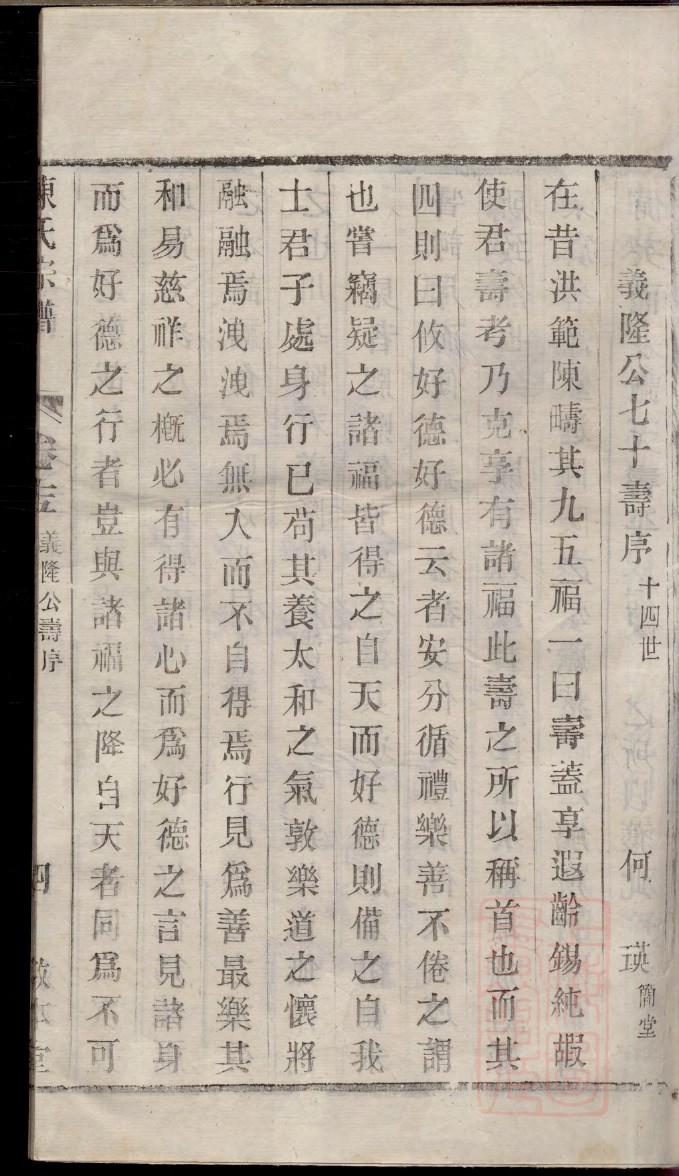 義隆公七十壽序 十四世 何瑛 簡堂
在昔洪範陳疇其九五福一曰壽蓋享遐齡錫純嘏
使君壽考乃克享有諸福此壽之所以稱首也而其
四則曰攸好德好德云者安分循禮樂善不倦之謂
也嘗竊疑之諸福皆得之自天而好德則備之自我
士君子處身行已苟其養太和之氣敦樂道之懷將
融融焉洩洩焉無入而不自得焉行見爲善最樂其
和易慈祥之槪必有得諸心而爲好德之言見諸身
而爲好德之行者豈與諸福之降自天者同爲不可
陳氏宗譜 卷 義隆公壽序 四